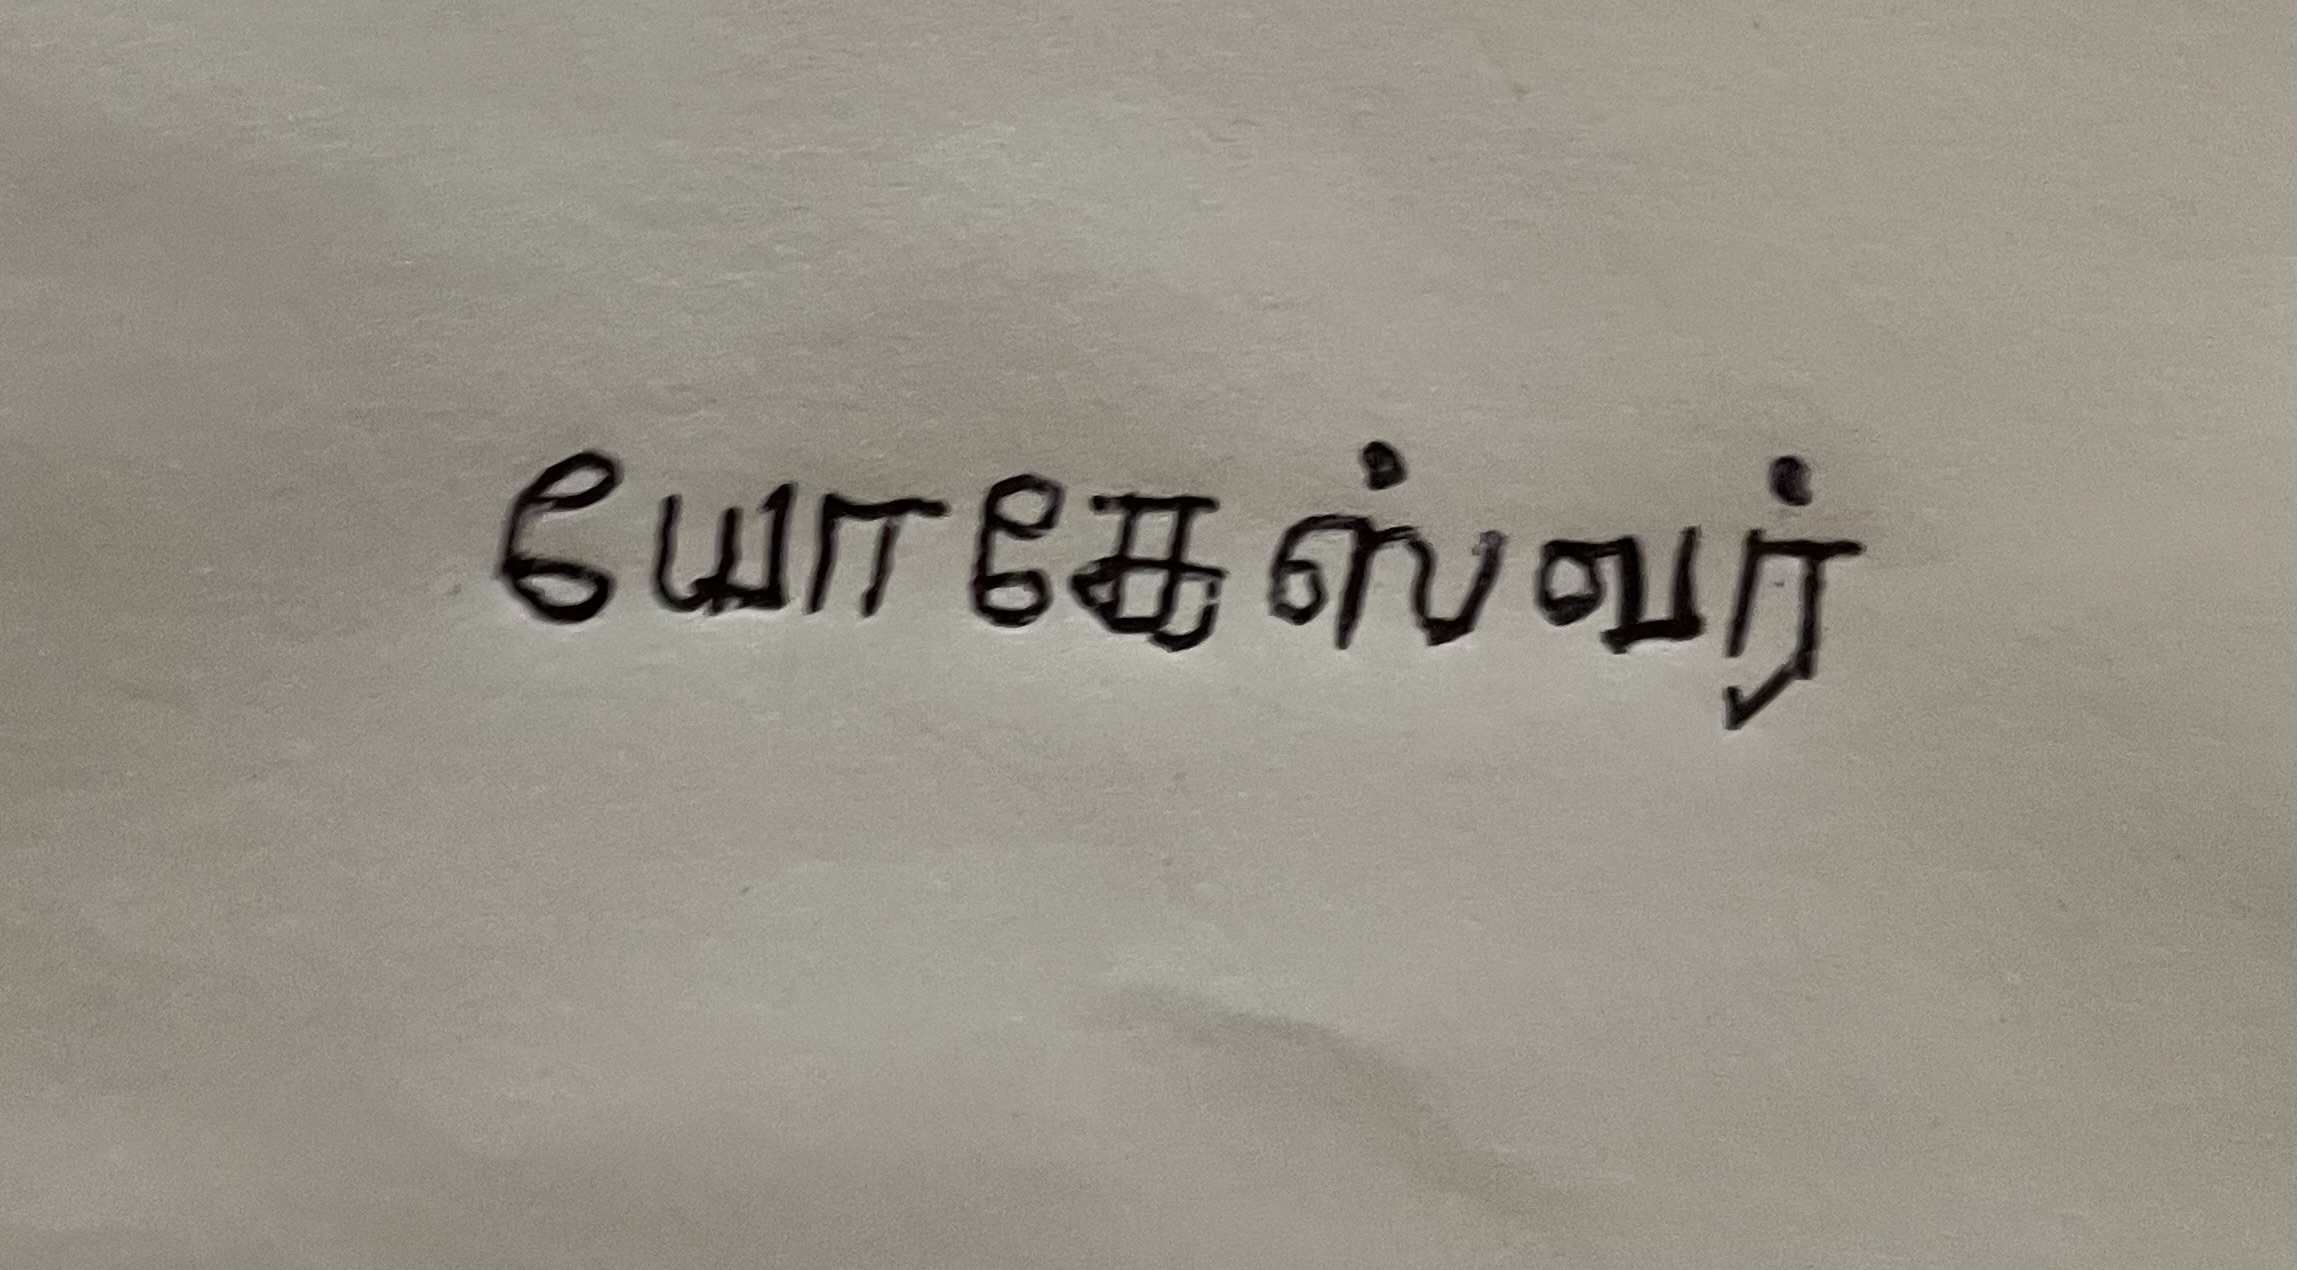 யோகேஸ்வர்